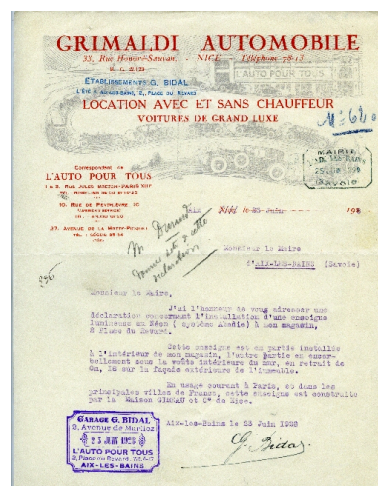 GRIMALDI AUTOMOBILE
33, Rue Honoré-Sauvan. - NICE Téléphone 78-13
L'AUTO POUR TOUS
ETABLISSEMENTS G. BIDAL
L'ÉTÉ A AIX-LES-BAINS, 2, PLACE DU REVARD
LOCATION AVEC ET SANS CHAUFFEUR
VOITURES DE GRAND LUXE
MAIRIE
AIX-LES-BAINS
SAVOIE
Correspondant de
L'AUTO POUR TOUS
PARIS
10, RUE DE
AIX le 23 Juin 192
M Durand
Monsieur le Maire
d'AIX-LES-BAINS (Savoie)
Monsieur le Maire,
J'ai l'honneur de vous adresser une
déclaration concernant l'installation d'une enseigne
lumineuse au Néon ( système ) à mon magasin,
2 Place du Revard.
Cette enseigne est en partie installée
à l'intérieur de mon magasin, l'autre partie en encor-
bellement sous la voûte intérieure du mur, en retrait de
Om, 15 sur la façade extérieure de l'immeuble.
En usage courant à Paris, et dans les
principales villes de France, cette enseigne est construite
par la Maison et C° de Nice.
Aix-les-Bains le 23 Juin 1928
GARAGE G. BIDAL
2, Avenue de Marlioz
23 JUIN 1928
L'AUTO POUR TOUS
2, Place du Revard
AIX-LES-BAINS
G. Bidal